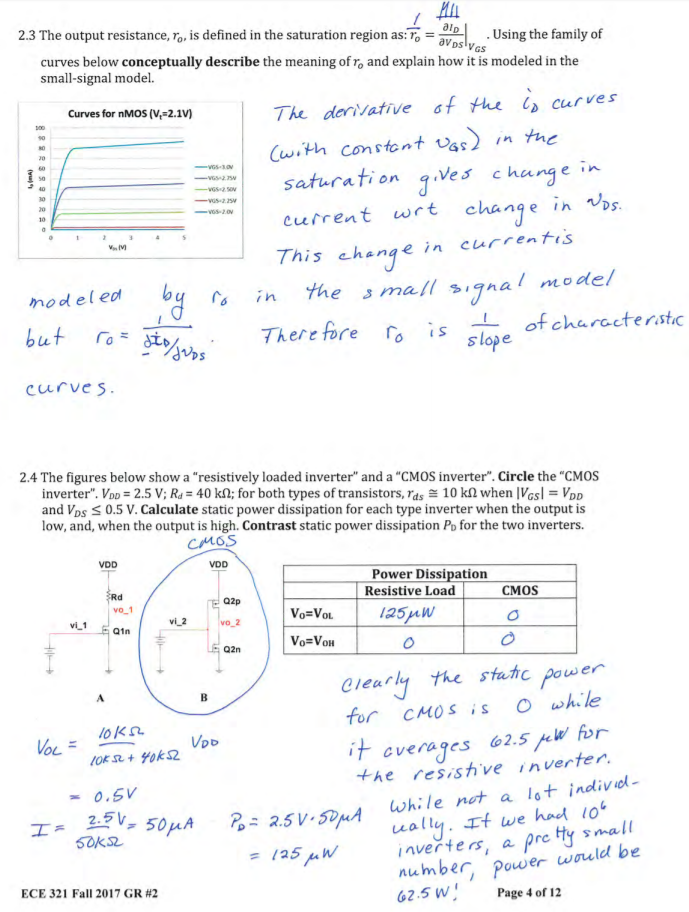 1 MM
2.3 The output resistance, ro, is defined in the saturation region as: ro = ∂ID/∂VDS|VGS. Using the family of
curves below conceptually describe the meaning of ro and explain how it is modeled in the
small-signal model.
Curves for nMOS (Vt=2.1V)
100
90
80
70
60
50
40
30
20
10
0
ID (mA)
0 1 2 3 4 5
VDS (V)
VGS=3.0V
VGS=2.75V
VGS=2.50V
VGS=2.25V
VGS=2.0V
The derivative of the iD curves
(with constant VGS) in the
saturation gives change in
current wrt change in VDS.
This change in current is
modeled by ro in the small signal model
but ro = 1/(∂iD/∂VDS). Therefore ro is 1/slope of characteristic
curves.
2.4 The figures below show a "resistively loaded inverter" and a "CMOS inverter". Circle the "CMOS
inverter". VDD = 2.5 V; Rd = 40 kΩ; for both types of transistors, rds ≅ 10 kΩ when |VGS| = VDD
and VDS ≤ 0.5 V. Calculate static power dissipation for each type inverter when the output is
low, and, when the output is high. Contrast static power dissipation PD for the two inverters.
CMOS
VDD VDD
Rd
vo_1
vi_1
Q1n
Q2p
vi_2
vo_2
Q2n
A B
Power Dissipation
Resistive Load CMOS
VO=VOL 125μW 0
VO=VOH 0 0
Clearly the static power
for CMOS is 0 while
it averages 62.5 μW for
the resistive inverter.
While not a lot individ-
ually. If we had 10⁶
inverters, a pretty small
number, power would be
62.5 W!
VOL = 10KΩ/(10KΩ + 40KΩ) VDD
= 0.5V
I = 2.5V/50KΩ = 50μA PD = 2.5V·50μA
= 125 μW
ECE 321 Fall 2017 GR #2 Page 4 of 12